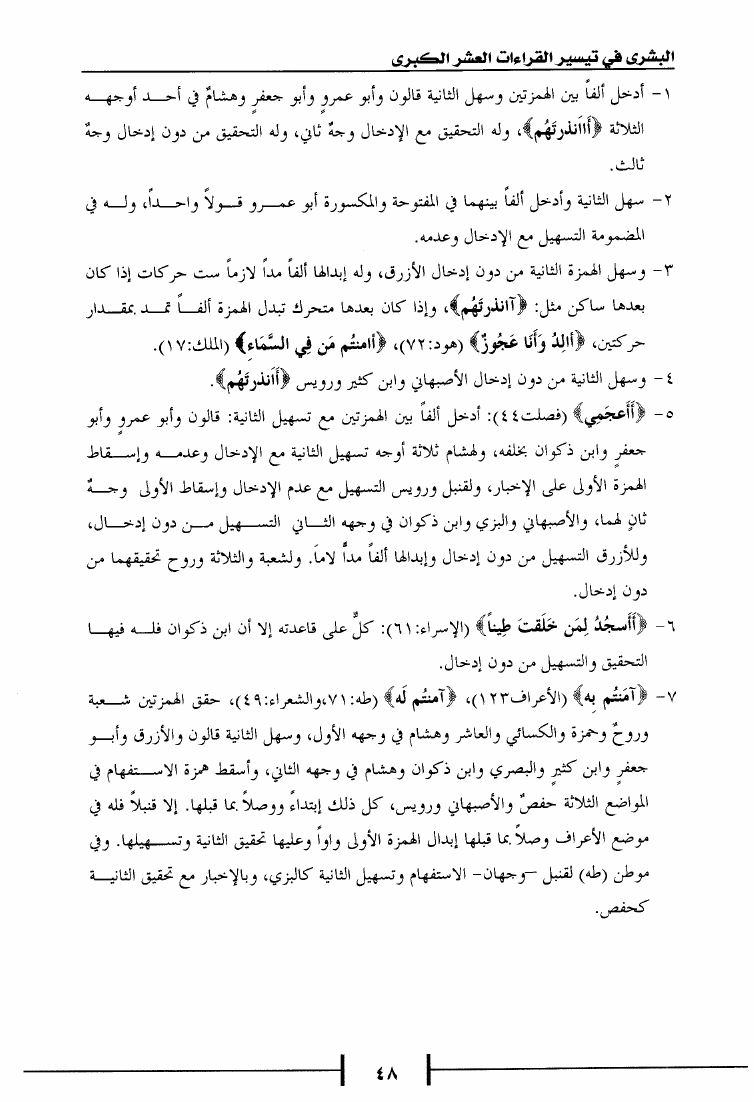 البشرى في تيسير القراءات العشر الكبرى
١- أدخل ألفاً بين الهمزتين وسهل الثانية قالون وأبو عمروٍ وأبو جعفرٍ وهشامٌ في أحــد أوجهــه
الثلاثة ﴿أاانذرتَهُم﴾، وله التحقيق مع الإدخال وجهٌ ثاني، وله التحقيق من دون إدخال وجهٌ
ثالث.
٢- سهل الثانية وأدخل ألفاً بينهما في المفتوحة والمكسورة أبو عمــرو قــولاً واحــداً، ولــه في
المضمومة التسهيل مع الإدخال وعدمه.
٣- وسهل الهمزة الثانية من دون إدخال الأزرق، وله إبدالها ألفاً مداً لازماً ست حركات إذا كان
بعدها ساكن مثل: ﴿آانذرتَهُم﴾، وإذا كان بعدها متحرك تبدل الهمزة ألفــاً تمــد بمقــدار
حركتين، ﴿أالِدُ وَأَنَا عَجُوزٌ﴾ (هود:٧٢)، ﴿أامنتُم مَن فِي السَّمَاءِ﴾ (الملك:١٧).
٤- وسهل الثانية من دون إدخال الأصبهاني وابن كثير ورويس ﴿أَانذرتَهُم﴾.
٥- ﴿أَأَعجَمِي﴾ (فصلت٤٤): أدخل ألفاً بين الهمزتين مع تسهيل الثانية: قالون وأبو عمروٍ وأبو
جعفرٍ وابن ذكوان بخلفه، ولهشام ثلاثة أوجه تسهيل الثانية مع الإدخال وعدمــه وإســقاط
الهمزة الأولى على الإخبار، ولقنبل ورويس التسهيل مع عدم الإدخال وإسقاط الأولى وجــهٌ
ثانٍ لهما، والأصبهاني والبزي وابن ذكوان في وجهه الثــاني التســهيل مــن دون إدخــال،
وللأزرق التسهيل من دون إدخال وإبدالها ألفاً مداً لاماً. ولشعبة والثلاثة وروح تحقيقهما من
دون إدخال.
٦- ﴿أَأَسجُدُ لِمَن خَلَقتَ طِيناً﴾ (الإسراء:٦١): كلٌّ على قاعدته إلا أن ابن ذكوان فلــه فيهــا
التحقيق والتسهيل من دون إدخال.
٧- ﴿آمَنتُم بِه﴾ (الأعراف١٢٣)، ﴿آمنتُم لَه﴾ (طه:٧١،والشعراء:٤٩)، حقق الهمزتين شــعبة
وروحٌ وحمزة والكسائي والعاشر وهشام في وجهه الأول، وسهل الثانية قالون والأزرق وأبــو
جعفرٍ وابن كثيرٍ والبصري وابن ذكوان وهشام في وجهه الثاني، وأسقط همزة الاســتفهام في
المواضع الثلاثة حفصٌ والأصبهاني ورويس، كل ذلك إبتداءً ووصلاً بما قبلها. إلا قنبلاً فله في
موضع الأعراف وصلاً بما قبلها إبدال الهمزة الأولى واواً وعليها تحقيق الثانية وتســهيلها. وفي
موطن (طه) لقنبل –وجهان- الاستفهام وتسهيل الثانية كالبزي، وبالإخبار مع تحقيق الثانيــة
كحفص.
٤٨